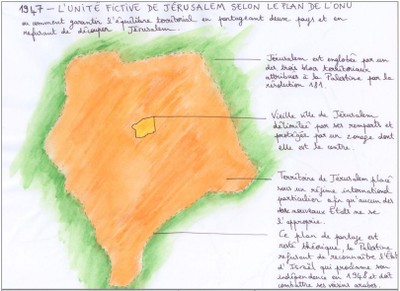 1947 – L'UNITÉ FICTIVE DE JÉRUSALEM SELON LE PLAN DE L'ONU
ou comment garantir l'équilibre territorial en partageant deux pays et en
refusant de découper Jérusalem.
Jérusalem est englobée par un
des trois blocs territoriaux
attribués à la Palestine par la
résolution 181.
Vieille ville de Jérusalem
délimitée par ses remparts et
protégée par un zonage dont
elle est le centre.
Territoire de Jérusalem placé
sous un régime international
particulier afin qu'aucun des
deux nouveaux États ne se
l'approprie.
Ce plan de partage est
resté théorique, la Palestine
refusant de reconnaître l'État
d'Israël qui proclame son
indépendance en 1948 et doit
combattre ses voisins arabes.